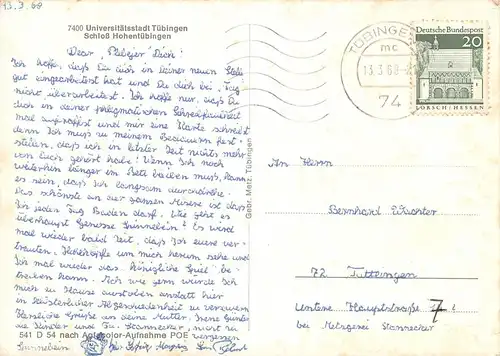 13.3.68
7400 Universitätsstadt Tübingen
Schloß Hohentübingen
Dear "Plebejer" Dich!
Ich hoffe, daß Du dich in deiner neuen Stelle
gut eingearbeitet hast und Du dich bei
nicht überarbeitest. Ich hoffe nur, daß Du
dich in deiner phlegmatischen Schreibfaulheit
mal aufraffst und mir eine Karte schreibst
denn Ich muß zu meinem Bedauern fest-
stellen, daß ich in letzter Zeit nichts mehr
von Euch gehört habe! Wenn Ich noch
weiterhin länger im Bett bleiben muß, kann
es sein, daß Ich langsam durchdrehe.
Das schönste an der ganzen Misere ist daß
Ich jeden Tag Baden darf. Wie geht es
überhaupt Genosse Es wird
mal wieder bald Zeit, daß Ich eure ver-
trauten um mich herum sehe und
Ich mal wieder das königliche Spiel be-
treiben kann. Ach wie gern würde Ich
mich zu Hause austoben anstatt hier
in Abgeschiedenheit zu
Herzliche Grüße an deine Mutter,
die Kinder und Fa. Stannecker, nicht zu
vergessen
541 D 54 nach Agfacolor-Aufnahme POE
Gebr. Metz, Tübingen
TÜBINGEN
mc
13.3.68
74
Deutsche Bundespost
20
LORSCH/HESSEN
An Herrn
Bernhard Wachter
72 Tuttlingen
Untere Hauptstraße
bei Metzgerei Stannecker